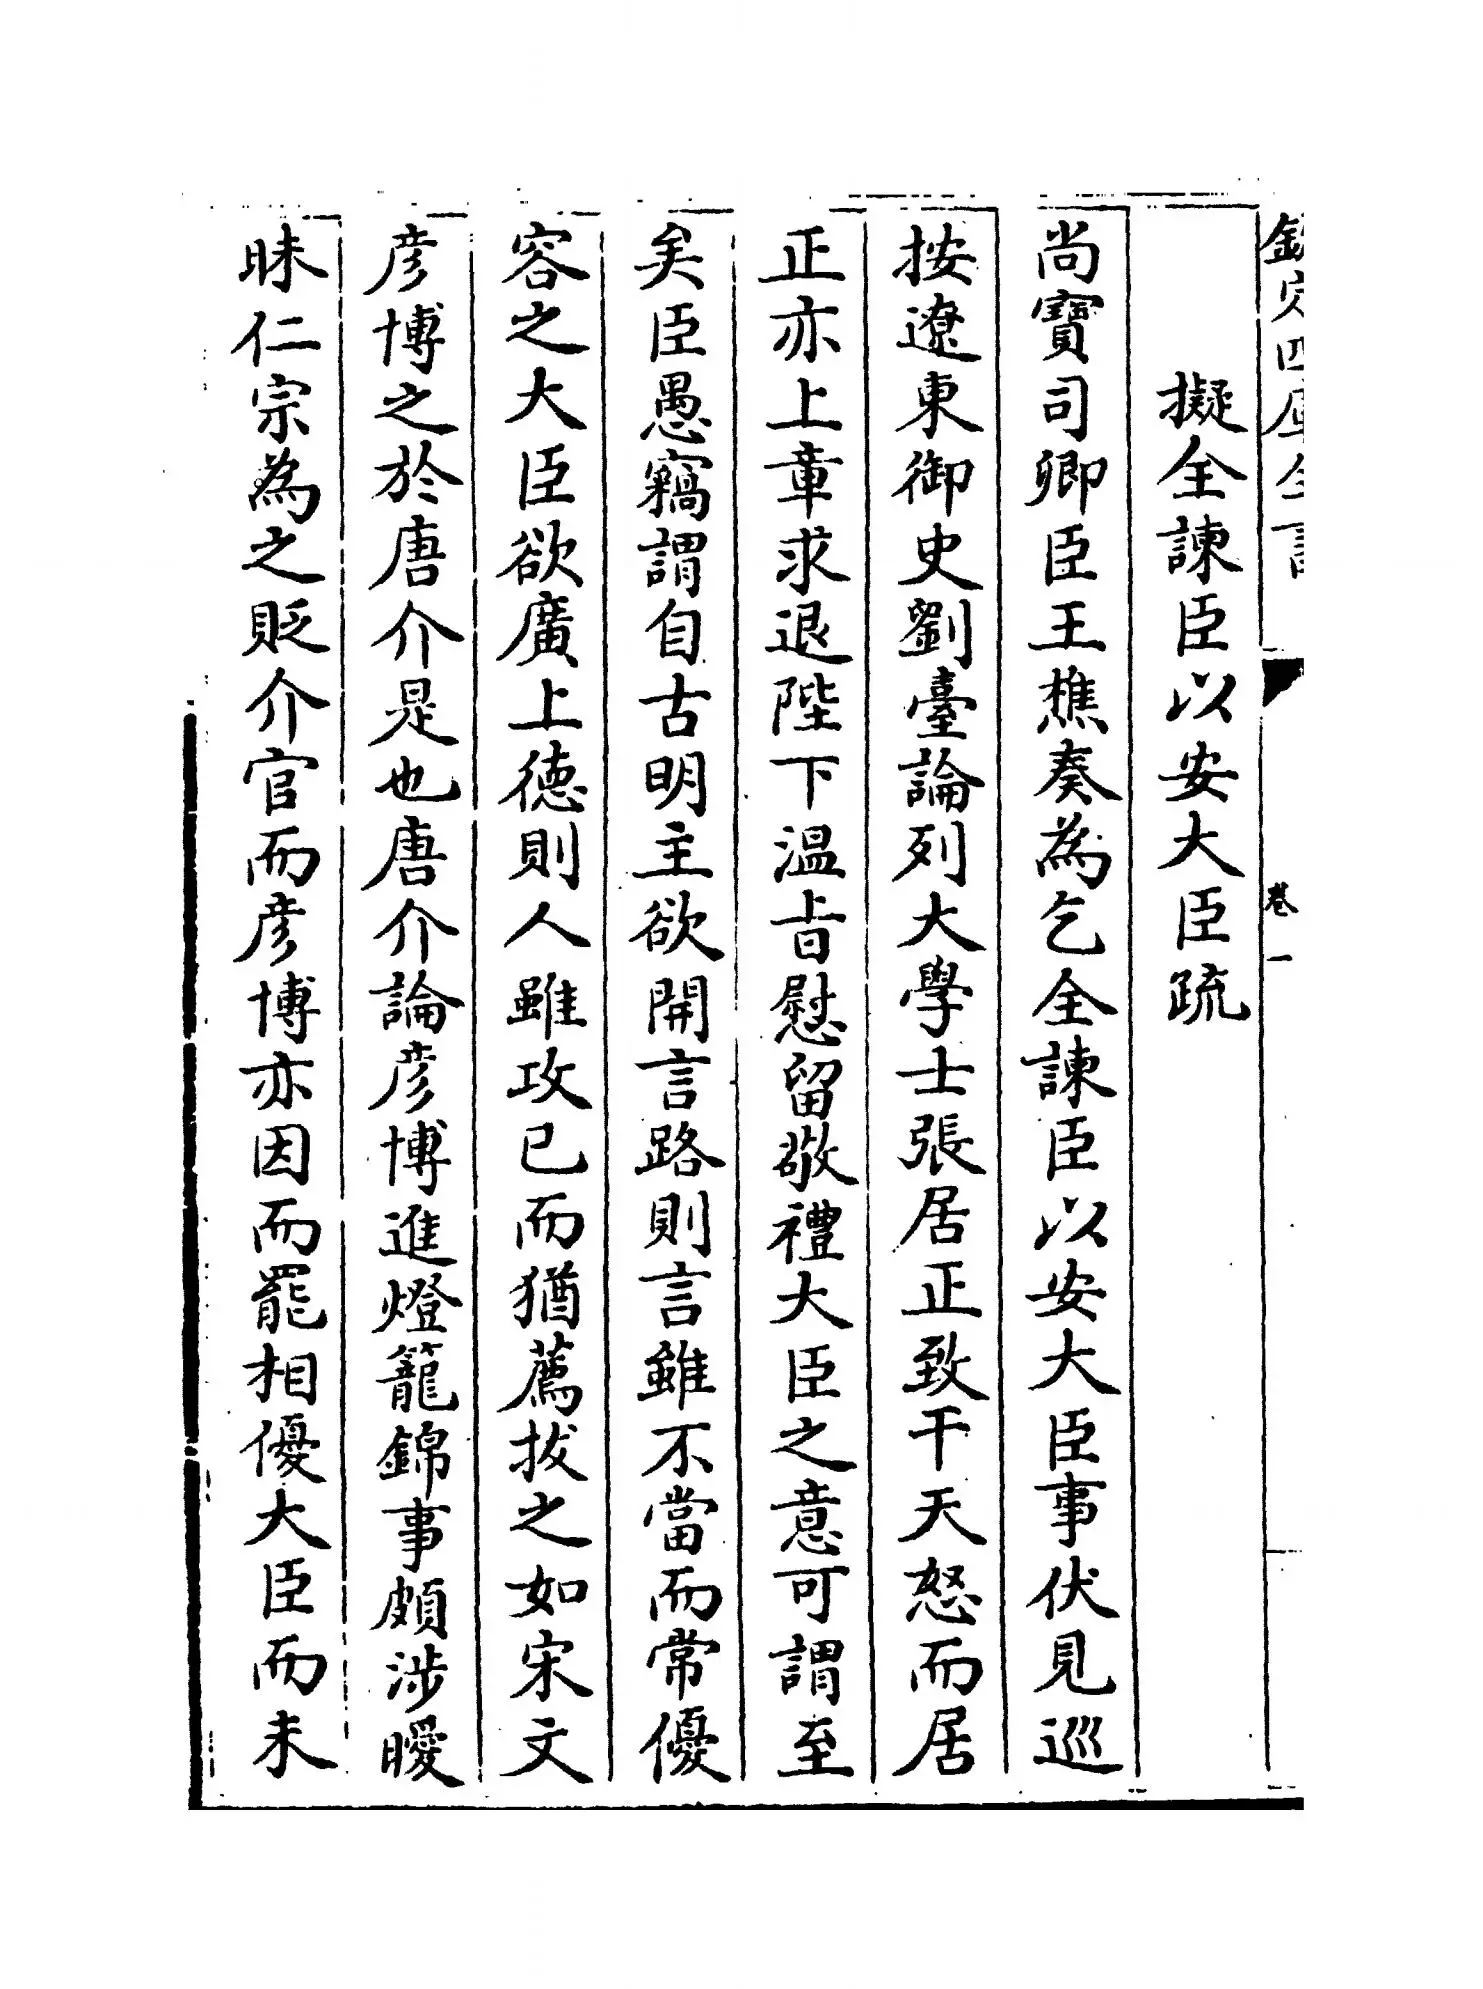 欽定四庫全書
卷一
擬全諫臣以安大臣疏
尚寶司卿臣王樵奏為乞全諫臣以安大臣事伏見巡
按遼東御史劉臺論列大學士張居正致干天怒而居
正亦上章求退陛下温旨慰留敬禮大臣之意可謂至
矣臣愚竊謂自古明主欲開言路則言雖不當而常優
容之大臣欲廣上徳則人雖攻已而猶薦拔之如宋文
彦博之於唐介是也唐介論彦博進燈籠錦事頗渉曖
昧仁宗為之貶介官而彦博亦因而罷相優大臣而未